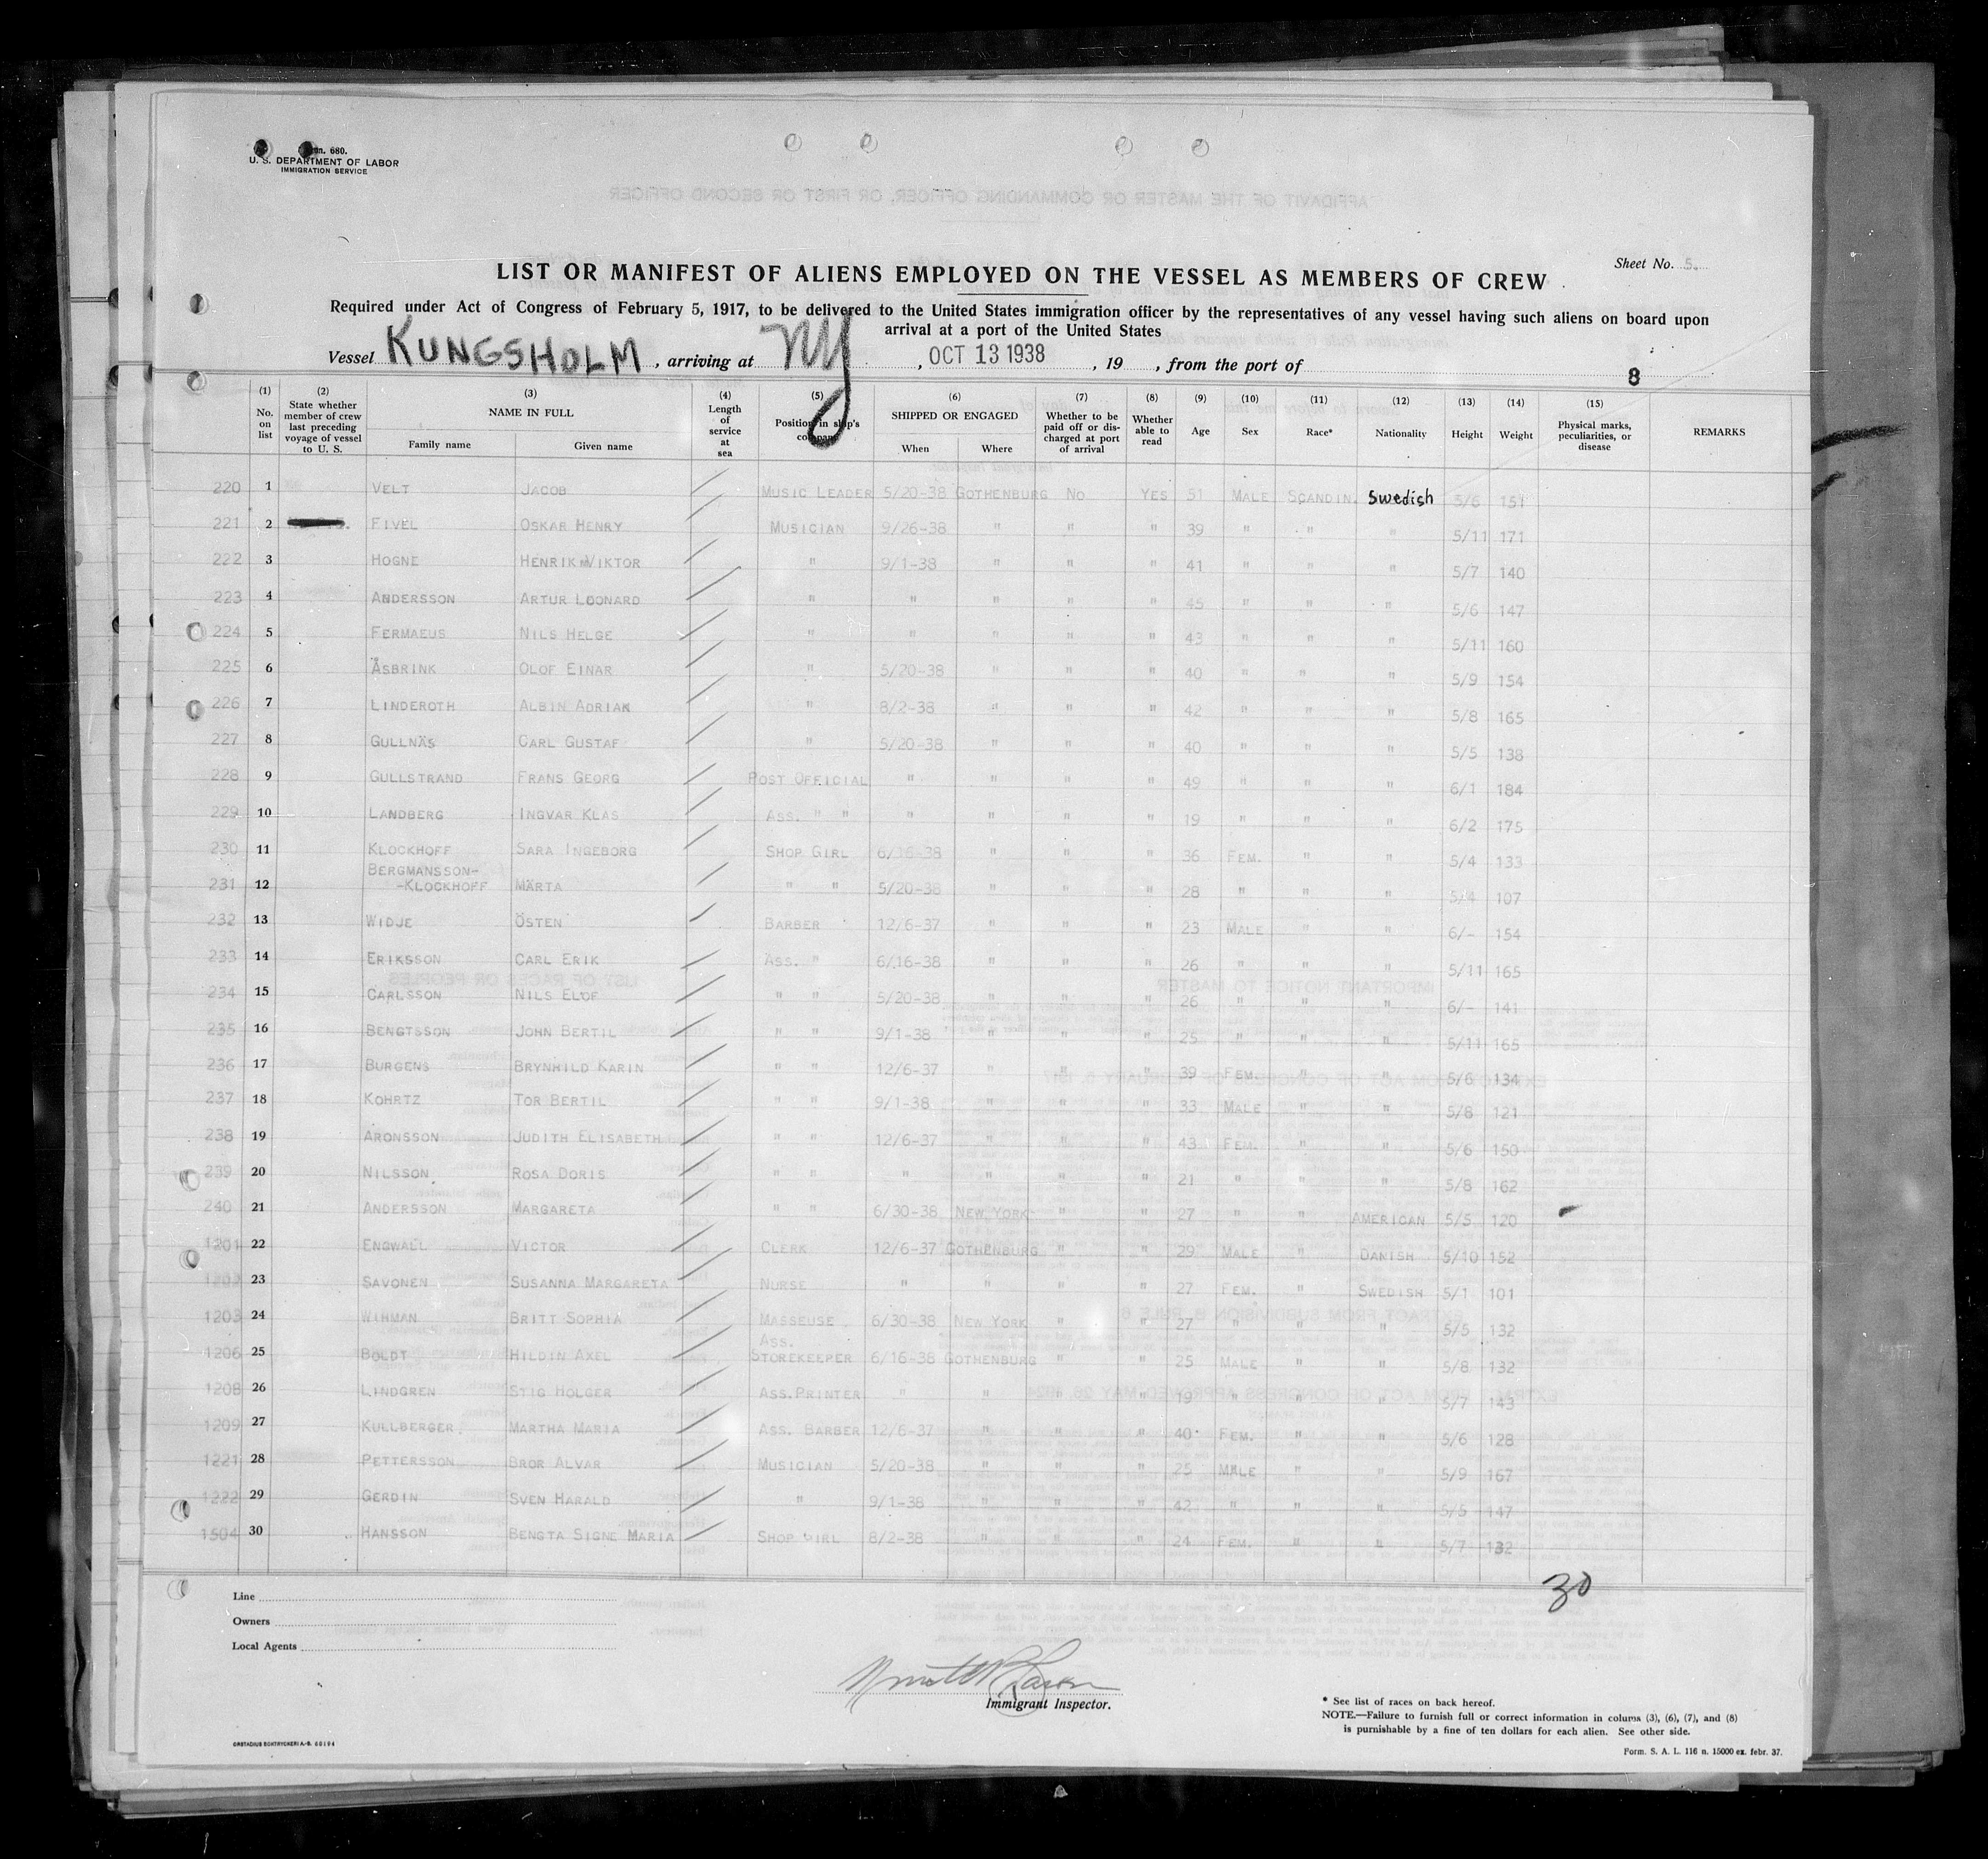 Form. 680.
U. S. DEPARTMENT OF LABOR
IMMIGRATION SERVICE
Sheet No. 5.
LIST OR MANIFEST OF ALIENS EMPLOYED ON THE VESSEL AS MEMBERS OF CREW
Required under Act of Congress of February 5, 1917, to be delivered to the United States immigration officer by the representatives of any vessel having such aliens on board upon
arrival at a port of the United States
Vessel KUNGSHOLM, arriving at NY, OCT 13 1938, 19 , from the port of
8
(1) No. on list (2) State whether member of crew last preceding voyage of vessel to U. S. (3) NAME IN FULL Family name Given name (4) Length of service at sea (5) Position in ship's company (6) SHIPPED OR ENGAGED When Where (7) Whether to be paid off or discharged at port of arrival (8) Whether able to read (9) Age (10) Sex (11) Race* (12) Nationality (13) Height (14) Weight (15) Physical marks, peculiarities, or disease REMARKS
220 1 VELT JACOB MUSIC LEADER 5/20-38 GOTHENBURG No YES 51 MALE SCANDIN. Swedish 5/6 151
221 2 FIVEL OSKAR HENRY MUSICIAN 9/26-38 " " " 39 " " " 5/11 171
222 3 HOGNE HENRIK VIKTOR " 9/1-38 " " " 41 " " " 5/7 140
223 4 ANDERSSON ARTUR LOONARD " " " " " 45 " " " 5/6 147
224 5 FERMAEUS NILS HELGE " " " " " 43 " " " 5/11 160
225 6 ÅSBRINK OLOF EINAR " 5/20-38 " " " 40 " " " 5/9 154
226 7 LINDEROTH ALBIN ADRIAN " 8/2-38 " " " 42 " " " 5/8 165
227 8 GULLNÄS CARL GUSTAF " 5/20-38 " " " 40 " " " 5/5 138
228 9 GULLSTRAND FRANS GEORG POST OFFICIAL " " " " 49 " " " 6/1 184
229 10 LANDBERG INGVAR KLAS ASS. " " " " " " 19 " " " 6/2 175
230 11 KLOCKHOFF SARA INGEBORG SHOP GIRL 6/16-38 " " " 36 FEM. " " 5/4 133
BERGMANSSON-
231 12 -KLOCKHOFF MÄRTA " " 5/20-38 " " " 28 " " " 5/4 107
232 13 WIDJE ÖSTEN BARBER 12/6-37 " " " 23 MALE " " 6/- 154
233 14 ERIKSSON CARL ERIK ASS. " 6/16-38 " " " 26 " " " 5/11 165
234 15 CARLSSON NILS ELOF " " 5/20-38 " " " 26 " " " 6/- 141
235 16 BENGTSSON JOHN BERTIL " " 9/1-38 " " " 25 " " " 5/11 165
236 17 BURGENS BRYNHILD KARIN " " 12/6-37 " " " 39 FEM. " " 5/6 134
237 18 KOHRTZ TOR BERTIL " " 9/1-38 " " " 33 MALE " " 5/8 121
238 19 ARONSSON JUDITH ELISABETH " " 12/6-37 " " " 43 FEM. " " 5/6 150
239 20 NILSSON ROSA DORIS " " " " " " 21 " " " 5/8 162
240 21 ANDERSSON MARGARETA " " 6/30-38 NEW YORK " " 27 " " AMERICAN 5/5 120
1201 22 ENGWALL VICTOR CLERK 12/6-37 GOTHENBURG " " 29 MALE " DANISH 5/10 152
23 SAVONEN SUSANNA MARGARETA NURSE " " " " 27 FEM. " SWEDISH 5/1 101
1203 24 WIHMAN BRITT SOPHIA MASSEUSE 6/30-38 NEW YORK " " 27 " " " 5/5 132
ASS.
1206 25 BOLDT HILDIN AXEL STOREKEEPER 6/16-38 GOTHENBURG " " 25 MALE " " 5/8 132
1208 26 LINDGREN STIG HOLGER ASS.PRINTER " " " " 19 " " " 5/7 143
1209 27 KULLBERGER MARTHA MARIA ASS. BARBER 12/6-37 " " " 40 FEM. " " 5/6 128
1221 28 PETTERSSON BROR ALVAR MUSICIAN 5/20-38 " " " 25 MALE " " 5/9 167
1222 29 GERDIN SVEN HARALD " 9/1-38 " " " 42 " " " 5/5 147
1504 30 HANSSON BENGTA SIGNE MARIA SHOP GIRL 8/2-38 " " " 24 FEM. " " 5/7 132
30
Line
Owners
Local Agents
Immigrant Inspector.
* See list of races on back hereof.
NOTE.—Failure to furnish full or correct information in colums (3), (6), (7), and (8)
is punishable by a fine of ten dollars for each alien. See other side.
Form. S. A. L. 116 n. 15000 ex. febr. 37.